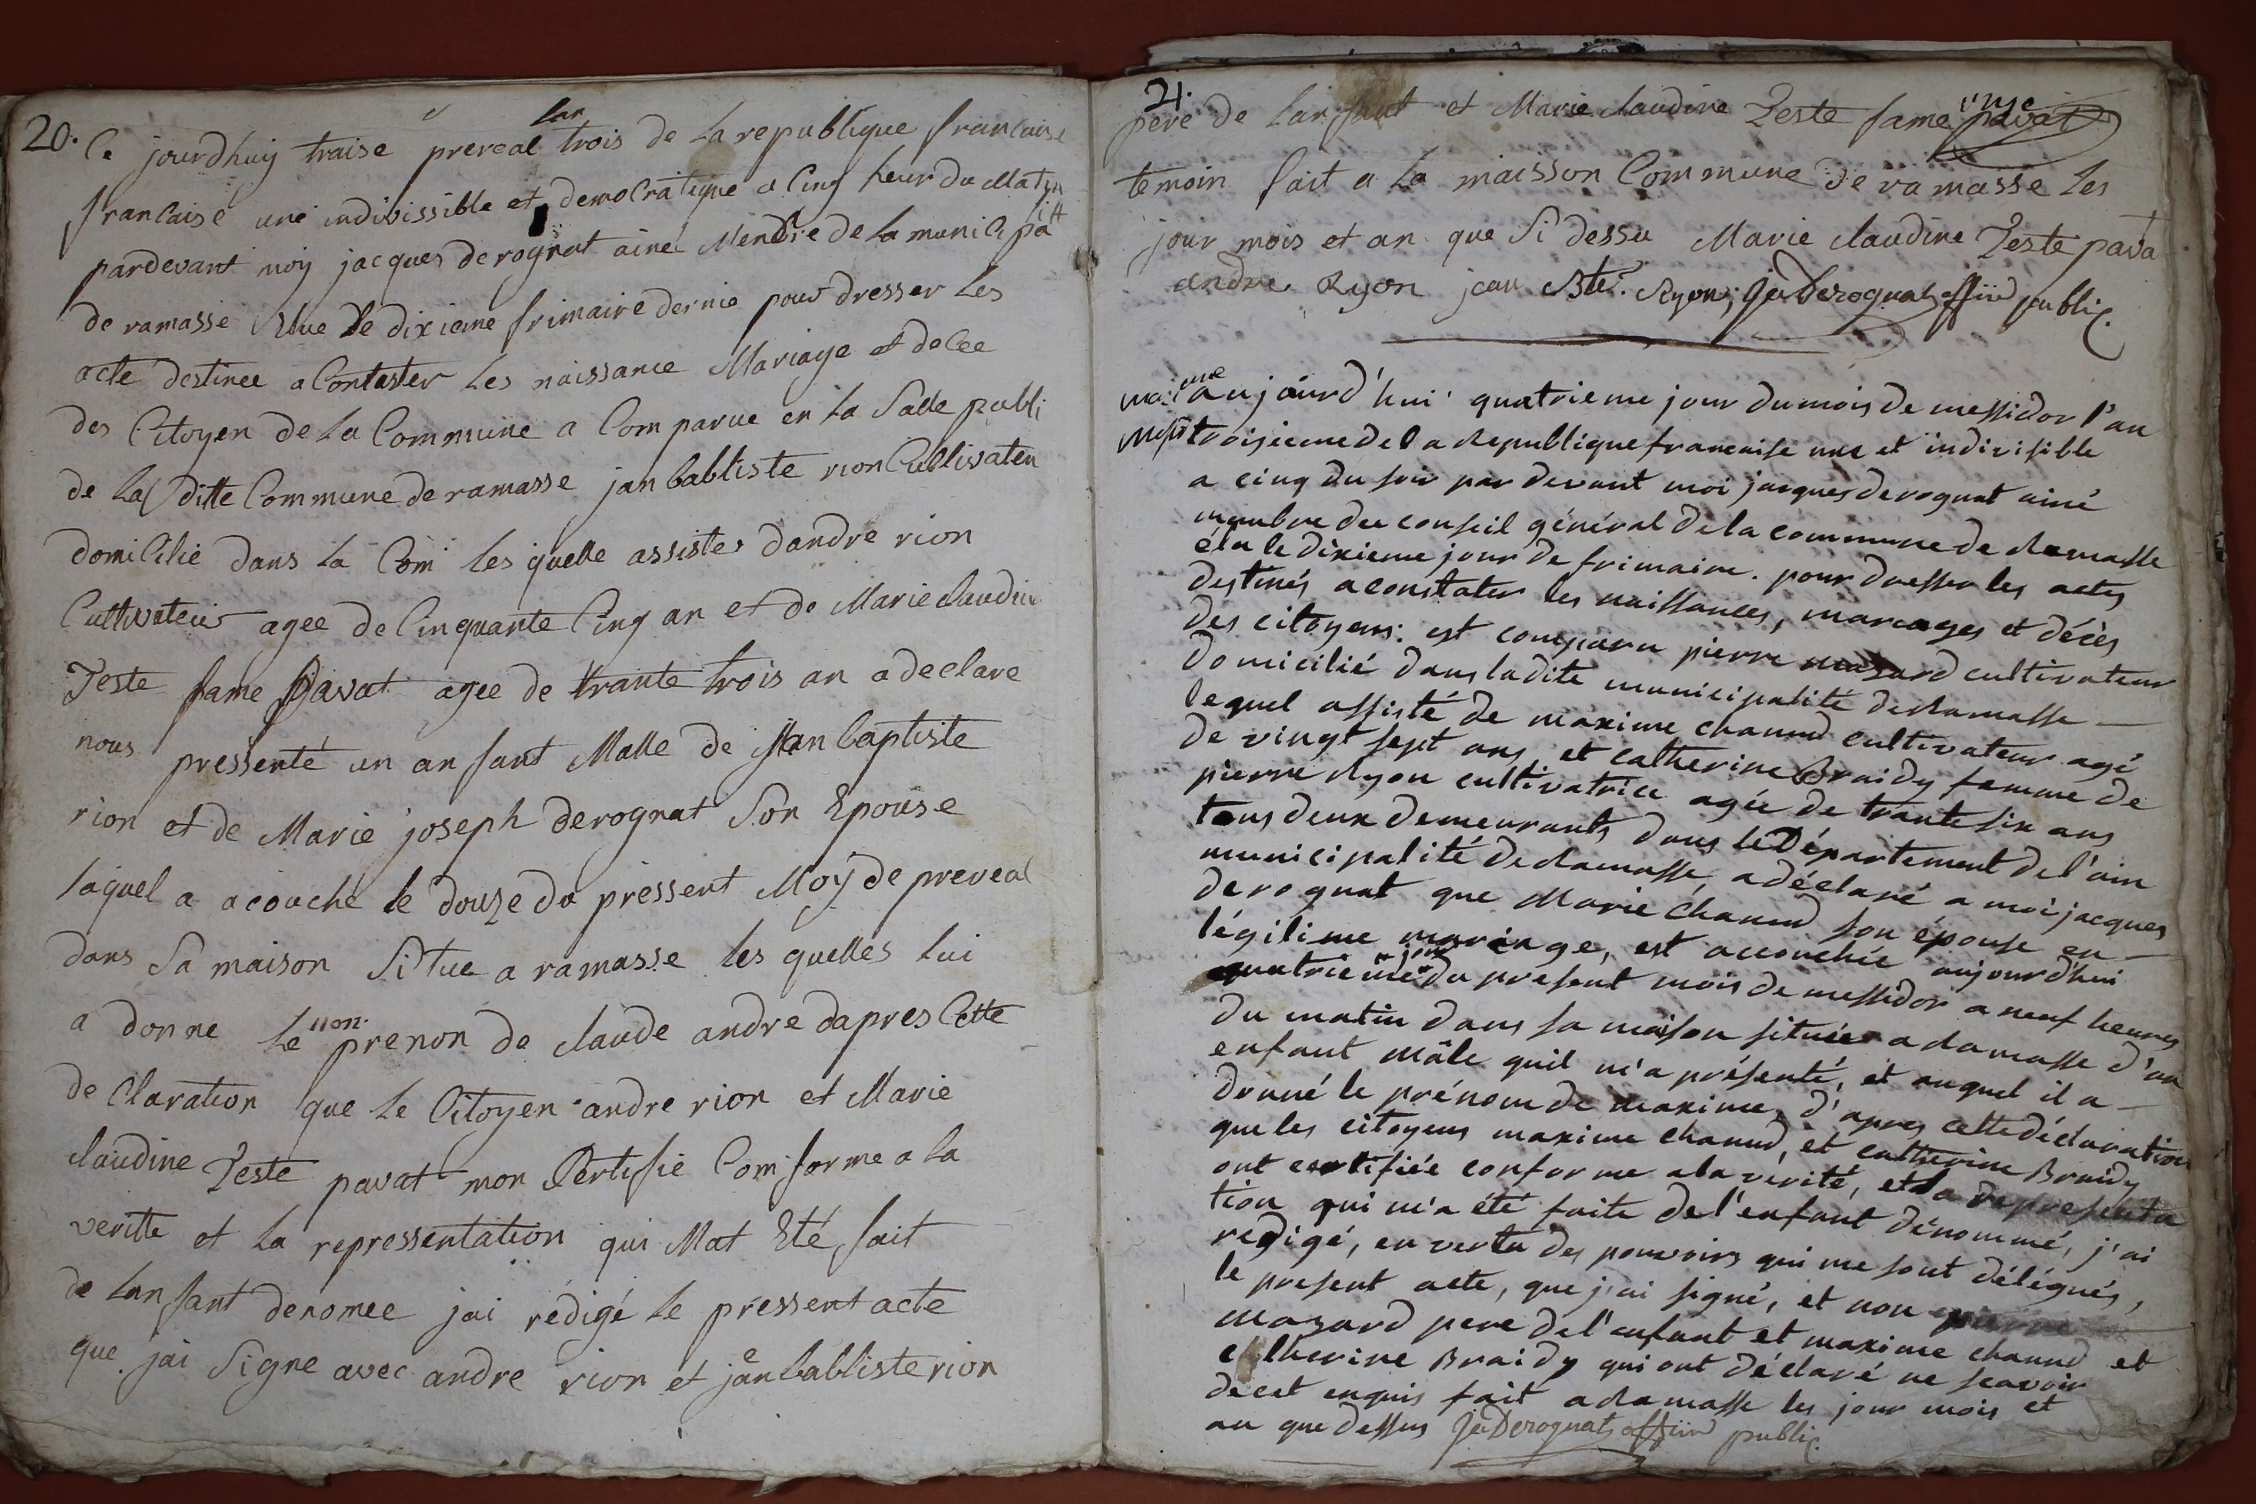 20.
Ce jourdhuy traise prereal lan trois de la republique francaise
francaise une indivissible et democratique a Cinq heur du Matin
pardevant moy jacques derognat ainé Menbre de la municipalitt
de ramasse Elue le dixieme frimaire dernie pour dresser les
acte destinee a Contester les naissance Mariage et decee
des Citoyen de la Commune a Comparue en la Salle publi
de la ditte Commune de ramasse jan babtiste rion Cultivateu
domicilie dans la Com les quelle assistes dandre rion
Cultivateur agee de Cinquante Cinq an et de Marie claudine
Teste fame pavat agee de trante trois an a declare
nous pressenté un an fant Malle de Jean baptiste
rion et de Marie joseph derognat Son Epouse
laquel a acouché le douze du pressent Moy de prereal
dans Sa maison Situe a ramasse les quelles lui
a donne le non prenon de claude andre dapres Cette
de Claration que le Citoyen andre rion et Marie
claudine Teste pavat mon Certifie Comforme a la
veritte et la repressentation qui Mat Eté fait
de lan fant denomee jai rédigé le pressent acte
que jai Signe avec andre rion et jean babtiste rion
21.
pere de lanfant et Marie claudine Teste fame pavat
temoin fait a la maisson Commune de ramasse les
jour mois et an que Si dessu Marie claudine Teste pava
andre Ryon jean Bte. Ryon, Ja Derognat offiié public.
aujourd'hui quatrieme jour du mois de messidor l'an
troisieme de la Republique francaise une et indivisible
a cinq du soir par devant moi jacques derognat ainé
membre du conseil général de la commune de Ramasse
élu le dixieme jour de frimaire. pour dresser les actes
destinés a constater les naissances, mariages et décès
des citoyens: est comparu pierre mazard cultivateur
domicilié dans ladite municipalité de Ramasse
lequel assisté de maxime chanud cultivateur agé
de vingt sept ans et catherine Braidy femme de
pierre Ryon cultivatrice agée de trante six ans
tous deux demeurants dans le Département de l'ain
municipalité de Ramasse, a déclaré a moi jacques
derognat que Marie chanud son épouse en
légitime mariage, est accouchée aujourd'hui
quatrieme jour du present mois de messidor a neuf heures
du matin dans sa maison située a Ramasse d'un
enfant mâle quil m'a présenté, et auquel il a
donné le prénom de maxime, d'apres cette déclaration
que les citoyens maxime chanud, et catherine Braidy
ont certifiée conforme a la vérité, et la représenta
tion qui m'a été faite de l'enfant dénommé, j'ai
redigé, en vertu des pouvoirs qui me sont délégués,
le present acte, que j'ai signé, et non pierre
mazard pere de l'enfant et maxime chanud et
catherine Braidy qui ont déclaré ne scavoir
de cet enquis fait a Ramasse les jour mois et
an que dessus Ja Derognat offiié public.